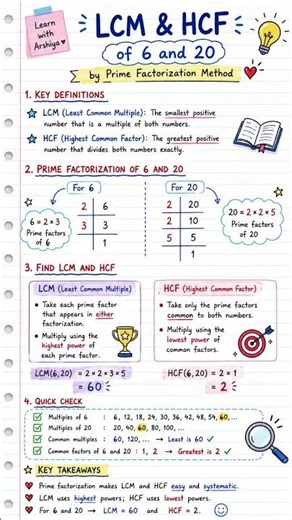 Learn
with
Arshiya ♥
LCM & HCF
of 6 and 20
by Prime Factorization Method
1. KEY DEFINITIONS
LCM (Least Common Multiple): The smallest positive
number that is a multiple of both numbers.
HCF (Highest Common Factor): The greatest positive
number that divides both numbers exactly.
2. PRIME FACTORIZATION OF 6 AND 20
For 6
2 6
3 3
1
6 = 2 × 3
Prime factors
of 6
For 20
2 20
2 10
5 5
1
20 = 2 × 2 × 5
Prime factors
of 20
3. FIND LCM AND HCF
LCM (Least Common Multiple)
• Take each prime factor
that appears in either
factorization.
• Multiply using the
highest power of
each prime factor.
LCM(6, 20) = 2 × 2 × 3 × 5
= 60
HCF (Highest Common Factor)
• Take only the prime factors
common to both numbers.
• Multiply using the
lowest power of
common factors.
HCF(6, 20) = 2 × 1
= 2
4. QUICK CHECK
Multiples of 6 : 6, 12, 18, 24, 30, 36, 42, 48, 54, 60, ...
Multiples of 20 : 20, 40, 60, 80, 100, ...
Common multiples : 60, 120, ... → Least is 60 ✓
Common factors of 6 and 20 : 1, 2 → Greatest is 2 ✓
KEY TAKEAWAYS
Prime factorization makes LCM and HCF easy and systematic.
LCM uses highest powers; HCF uses lowest powers.
For 6 and 20 → LCM = 60 and HCF = 2.